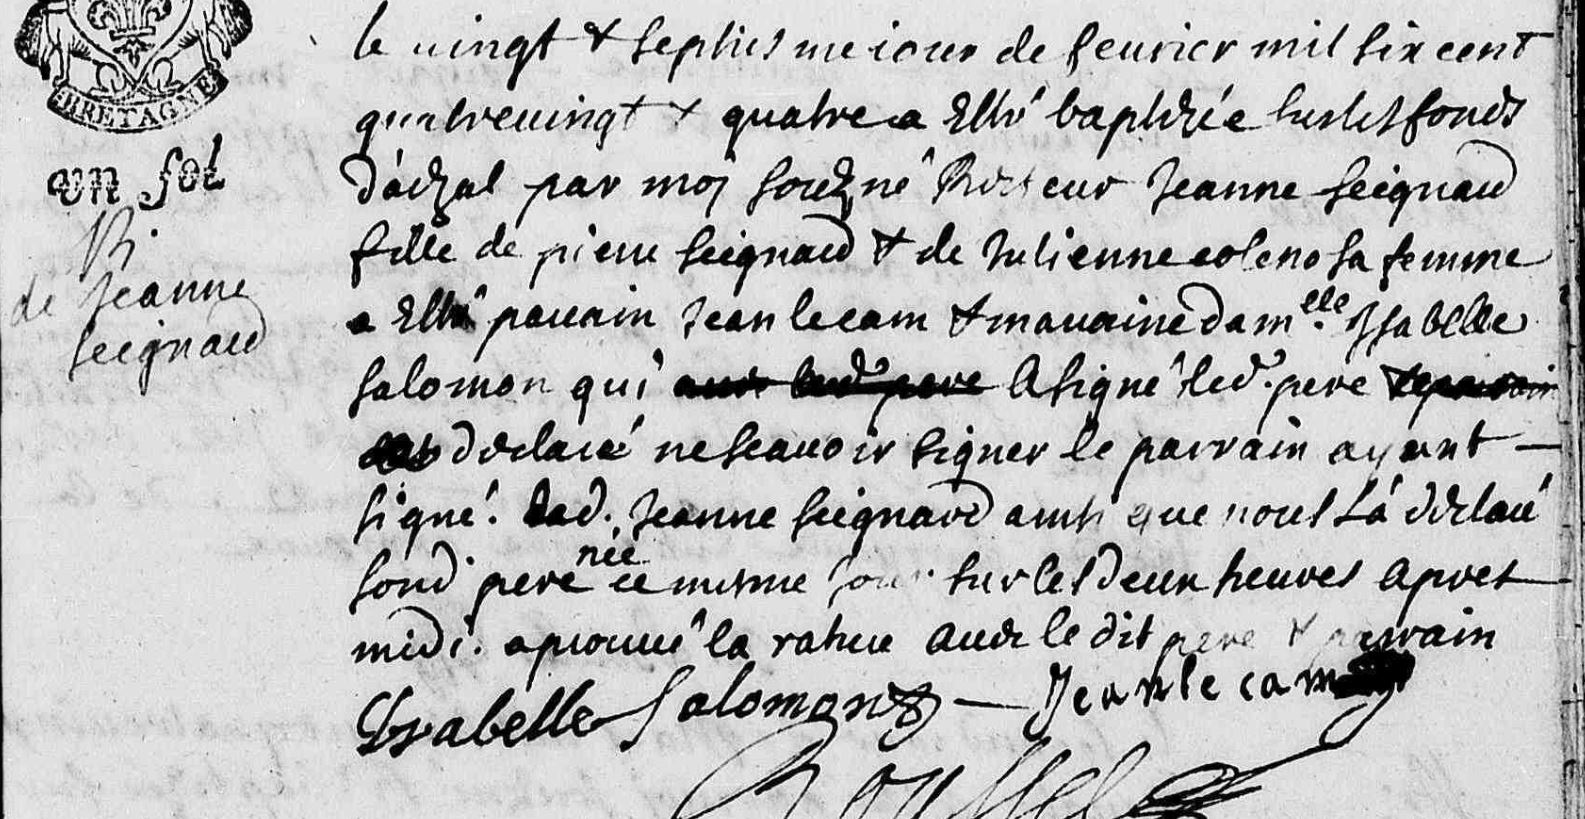 BRETAGNE
un sol
B.
de Jeanne
seignard
le vingt & septiesme iour de feurier mil six cent
quatreuingt & quatre a Esté baptizée sur les fonds
d'arzal par moy souzné Recteur Jeanne seignard
fille de pierre seignard & de Julienne coleno sa femme
a Esté parrain Jean lecam & maraine dam.elle Isabelle
salomon qui auec led. pere a signé led. pere
declaré ne scauoir signer le parrain ayant
signé. lad. Jeanne seignard ainsi que nous l'a declaré
sond pere née ce mesme jour sur les deux heures apres
midi. aprouué la rature auec le dit pere & parrain
Isabelle Salomon Jean le cam
Roussel